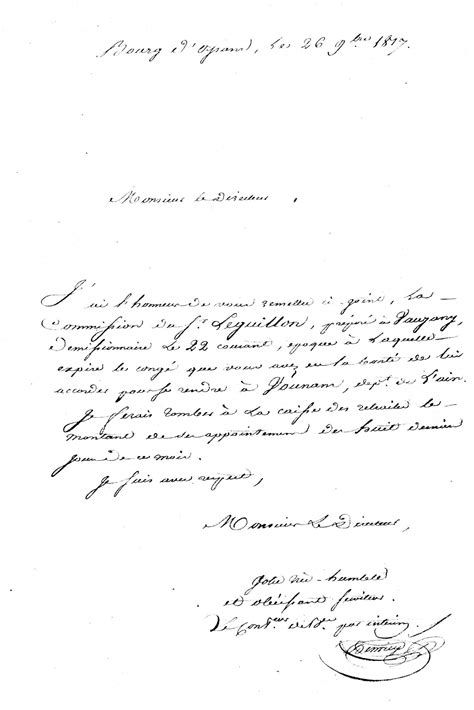 Bourg d'oysans, les 26 9bre 1817.
Monsieur le Directeur,
J'ai l'honneur de vous remettre ci joint, la
Commission du Sr. Leguillon, préposé à Vaujany,
démissionnaire le 22 courant, époque à laquelle
expire le congé que vous avez eu la bonté de lui
accorder pour se rendre à Vounans, dept. de l'ain.
Je ferais tomber à la caisse des retraites le
montant de ses appointemens des huit derniers
jours de ce mois.
Je suis avec respect,
Monsieur Le Directeur,
Votre très-humble
et obéissant serviteur
Le Contr. de Ve. par interim,